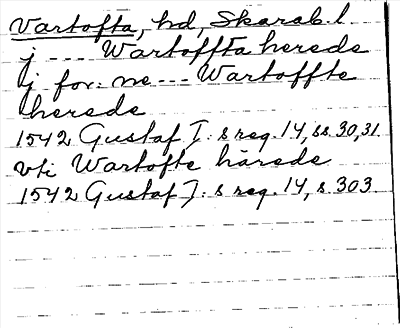 Vartofta, hd, Skarab. l.
j --- Wartoffta herede
ij for: ne --- Wartoffte
herede
1542 Gustaf I: s reg. 14, ss. 30, 31.
vti Wartofte härede
1542 Gustaf I: s reg. 14, s. 303